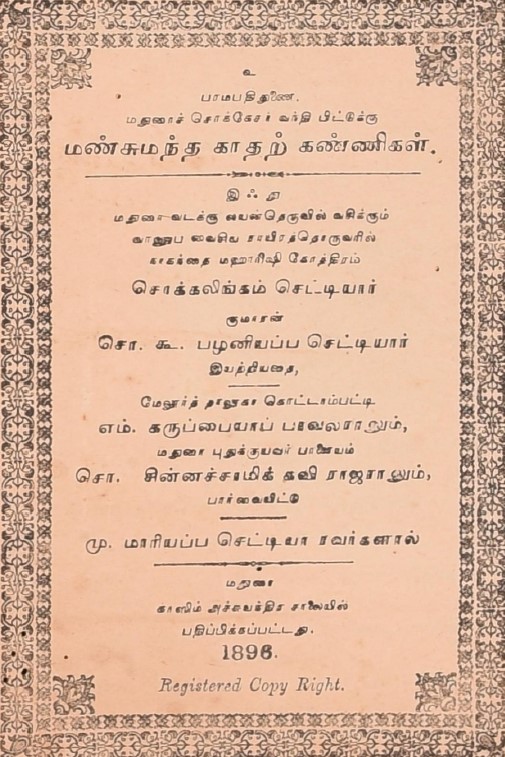 உ
பாமபதிதுணை.
மதுரைச் சொக்கேசர் வந்தி பிட்டுக்கு
மண்சுமந்த காதற் கண்ணிகள்.
இஃது
மதுரை வடக்கு வயன்தெருவில் வசிக்கும்
வாணுப வைசிய சாயிரத்தொருவரில்
காசுந்தை மஹாரிஷி கோத்திரம்
சொக்கலிங்கம் செட்டியார்
குமாரன்
சொ. கூ. பழனியப்ப செட்டியார்
இயற்றியதை,
மேலூர்த் தாலூகா கொட்டாம்பட்டி
எம். கருப்பையாப் பாவலராலும்,
மதுரை புதுக்குயவர் பாளையம்
சொ. சின்னச்சாமிக் கவி ராஜராலும்,
பார்வையிட்டு
மு. மாரியப்ப செட்டியா ரவர்களால்
மதுரை
காஸிம் அச்சுயந்திர சாலையில்
பதிப்பிக்கப்பட்டது.
1896.
Registered Copy Right.